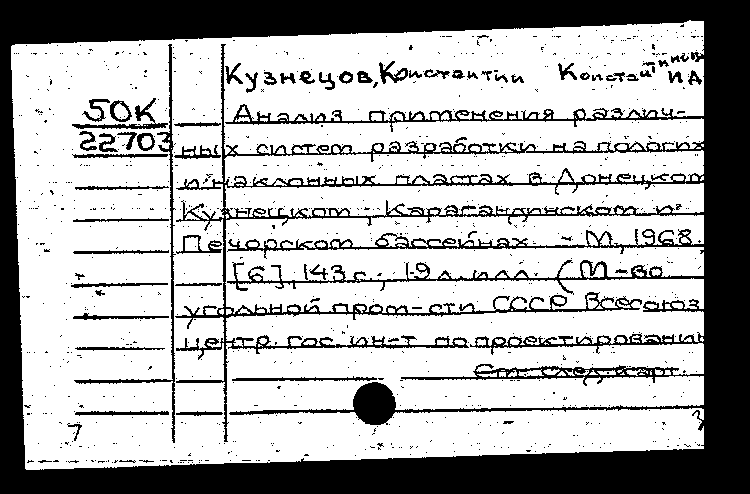 Кузнецов, Константин Константинович и д
50К
22703
Анализ применения различ-
ных систем разработки на пологих
и наклонных пластах в Донецком
Кузнецком, Карагандинском и
Печорском бассейнах. - М., 1968.
[6], 143 с.; 19 л. илл. (М-во
угольной пром-сти СССР Всесоюз
центр. гос. ин-т по проектировании
См. след. карт.
7
3